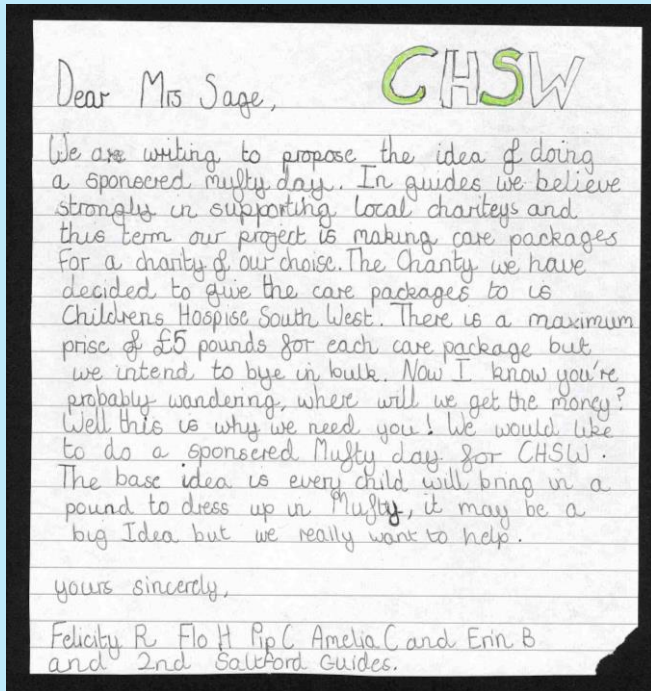 CHSW
Dear Mrs Sage,
We are writing to propose the idea of doing
a sponsered mufty day. In guides we believe
strongly in supporting local chariteys and
this term our project is making care packages
For a charity of our choise. The Charity we have
decided to give the care packages to is
Childrens Hospise South West. There is a maximum
prise of £5 pounds for each care package but
we intend to bye in bulk. Now I know you're
probably wandering, where will we get the money?
Well this is why we need you! We would like
to do a sponsered Mufty day for CHSW.
The base idea is every child will bring in a
pound to dress up in Mufty, it may be a
big Idea but we really want to help.
yours sincerely,
Felicity R Flo H Pip C Amelia C and Erin B
and 2nd Saltford Guides.